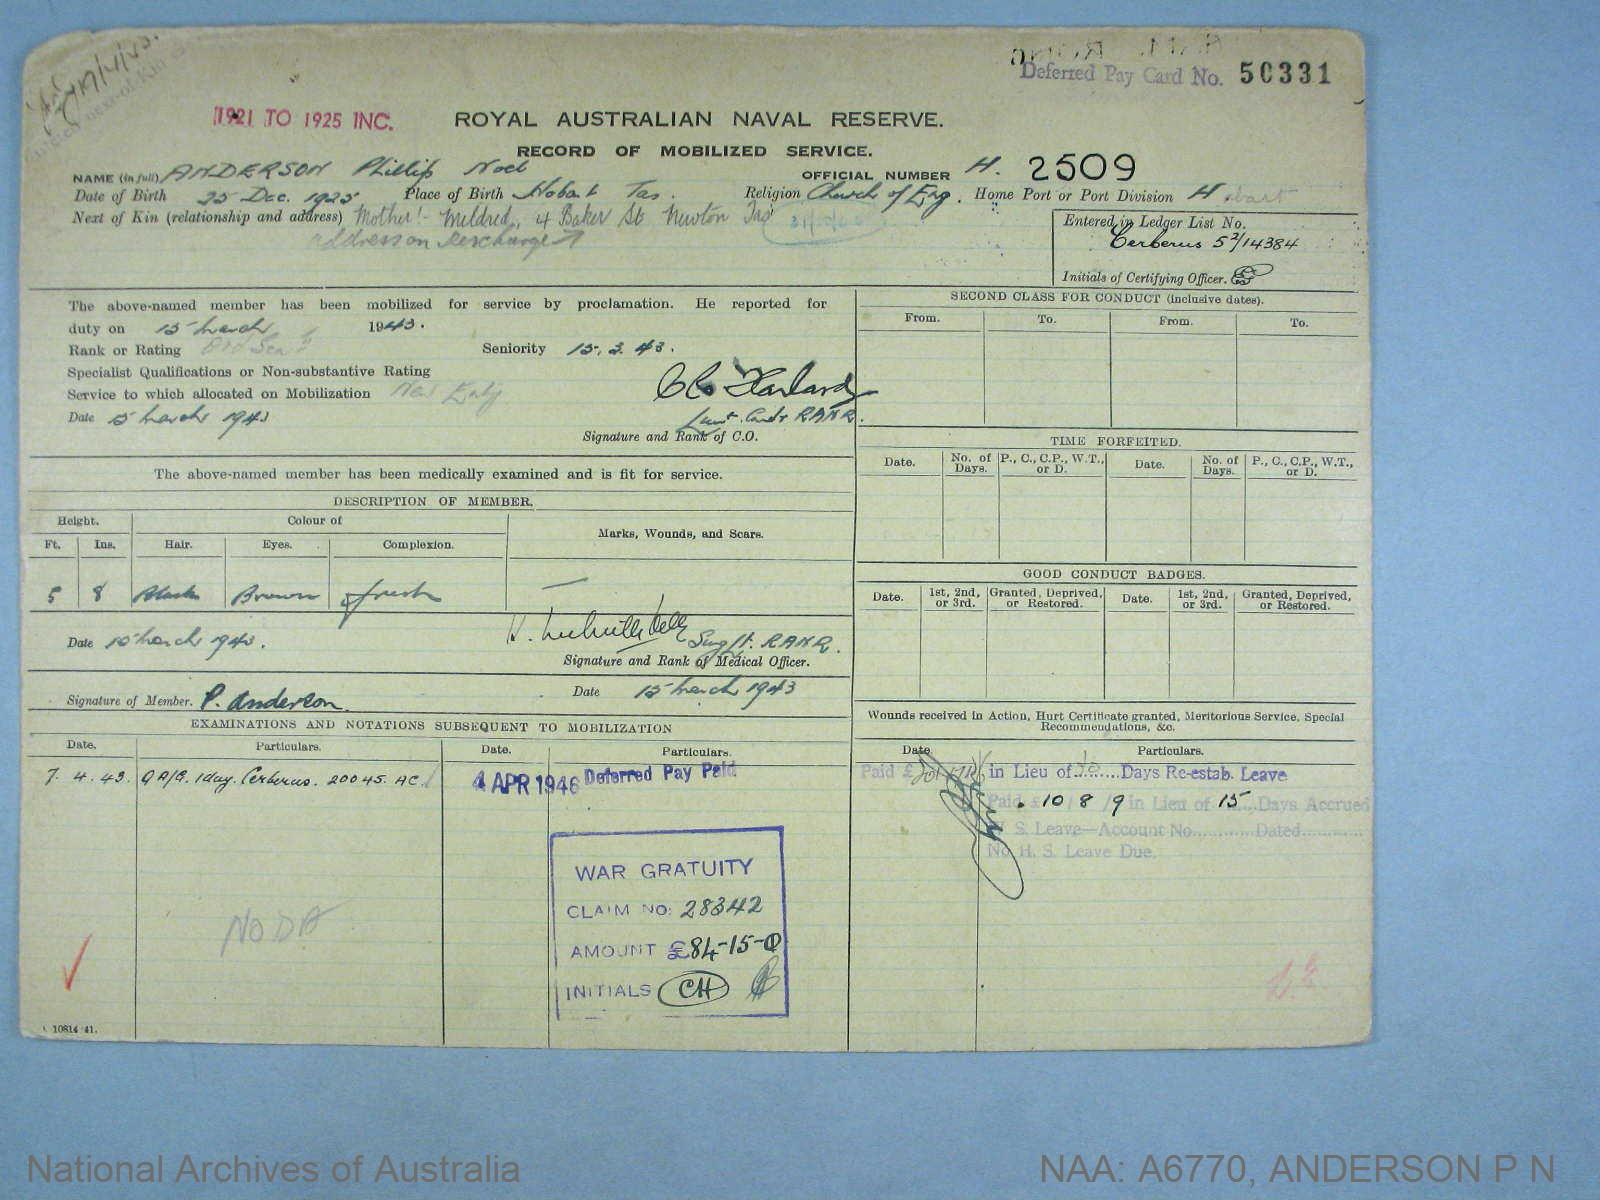 Deferred Pay Card No. 50331
1921 TO 1925 INC. ROYAL AUSTRALIAN NAVAL RESERVE.
RECORD OF MOBILIZED SERVICE.
NAME (in full) ANDERSON Phillip Noel OFFICIAL NUMBER H. 2509
Date of Birth 25 Dec. 1925 Place of Birth Hobart Tas. Religion Church of Eng. Home Port or Port Division Hobart
Next of Kin (relationship and address) Mother:- Mildred, 4 Baker St Newton Tas
address on discharge
Entered in Ledger List No.
Cerberus 5²/14384
Initials of Certifying Officer.
The above-named member has been mobilized for service by proclamation. He reported for
duty on 15 March 1943.
Rank or Rating Ord Sea Seniority 15.3.43.
Specialist Qualifications or Non-substantive Rating
Service to which allocated on Mobilization Nav Entry
Date 15 March 1943
Lieut. Comdr RANR.
Signature and Rank of C.O.
The above-named member has been medically examined and is fit for service.
DESCRIPTION OF MEMBER.
Height. Colour of Marks, Wounds, and Scars.
Ft. Ins. Hair. Eyes. Complexion.
5 8 Black Brown fresh —
Date 15 March 1943. Surg Lt. RANR.
Signature and Rank of Medical Officer.
Signature of Member. P. Anderson. Date 15 March 1943
EXAMINATIONS AND NOTATIONS SUBSEQUENT TO MOBILIZATION
Date. Particulars. Date. Particulars.
7. 4. 43. QA/G. 1 day. Cerberus. 20045. AC. 4 APR 1946 Deferred Pay Paid
WAR GRATUITY
CLAIM NO: 28342
AMOUNT £84-15-0
INITIALS CH
NO DA
10814/41.
SECOND CLASS FOR CONDUCT (inclusive dates).
From. To. From. To.
TIME FORFEITED.
Date. No. of Days. P., C., C.P., W.T., or D. Date. No. of Days. P., C., C.P., W.T., or D.
GOOD CONDUCT BADGES.
Date. 1st, 2nd, or 3rd. Granted, Deprived, or Restored. Date. 1st, 2nd, or 3rd. Granted, Deprived, or Restored.
Wounds received in Action, Hurt Certificate granted, Meritorious Service, Special
Recommendations, &c.
Date. Particulars.
Paid £ in Lieu of Days Re-estab. Leave
Paid £ 10/8/9 in Lieu of 15 Days Accrued
W. S. Leave—Account No. Dated
No H. S. Leave Due.
National Archives of Australia NAA: A6770, ANDERSON P N